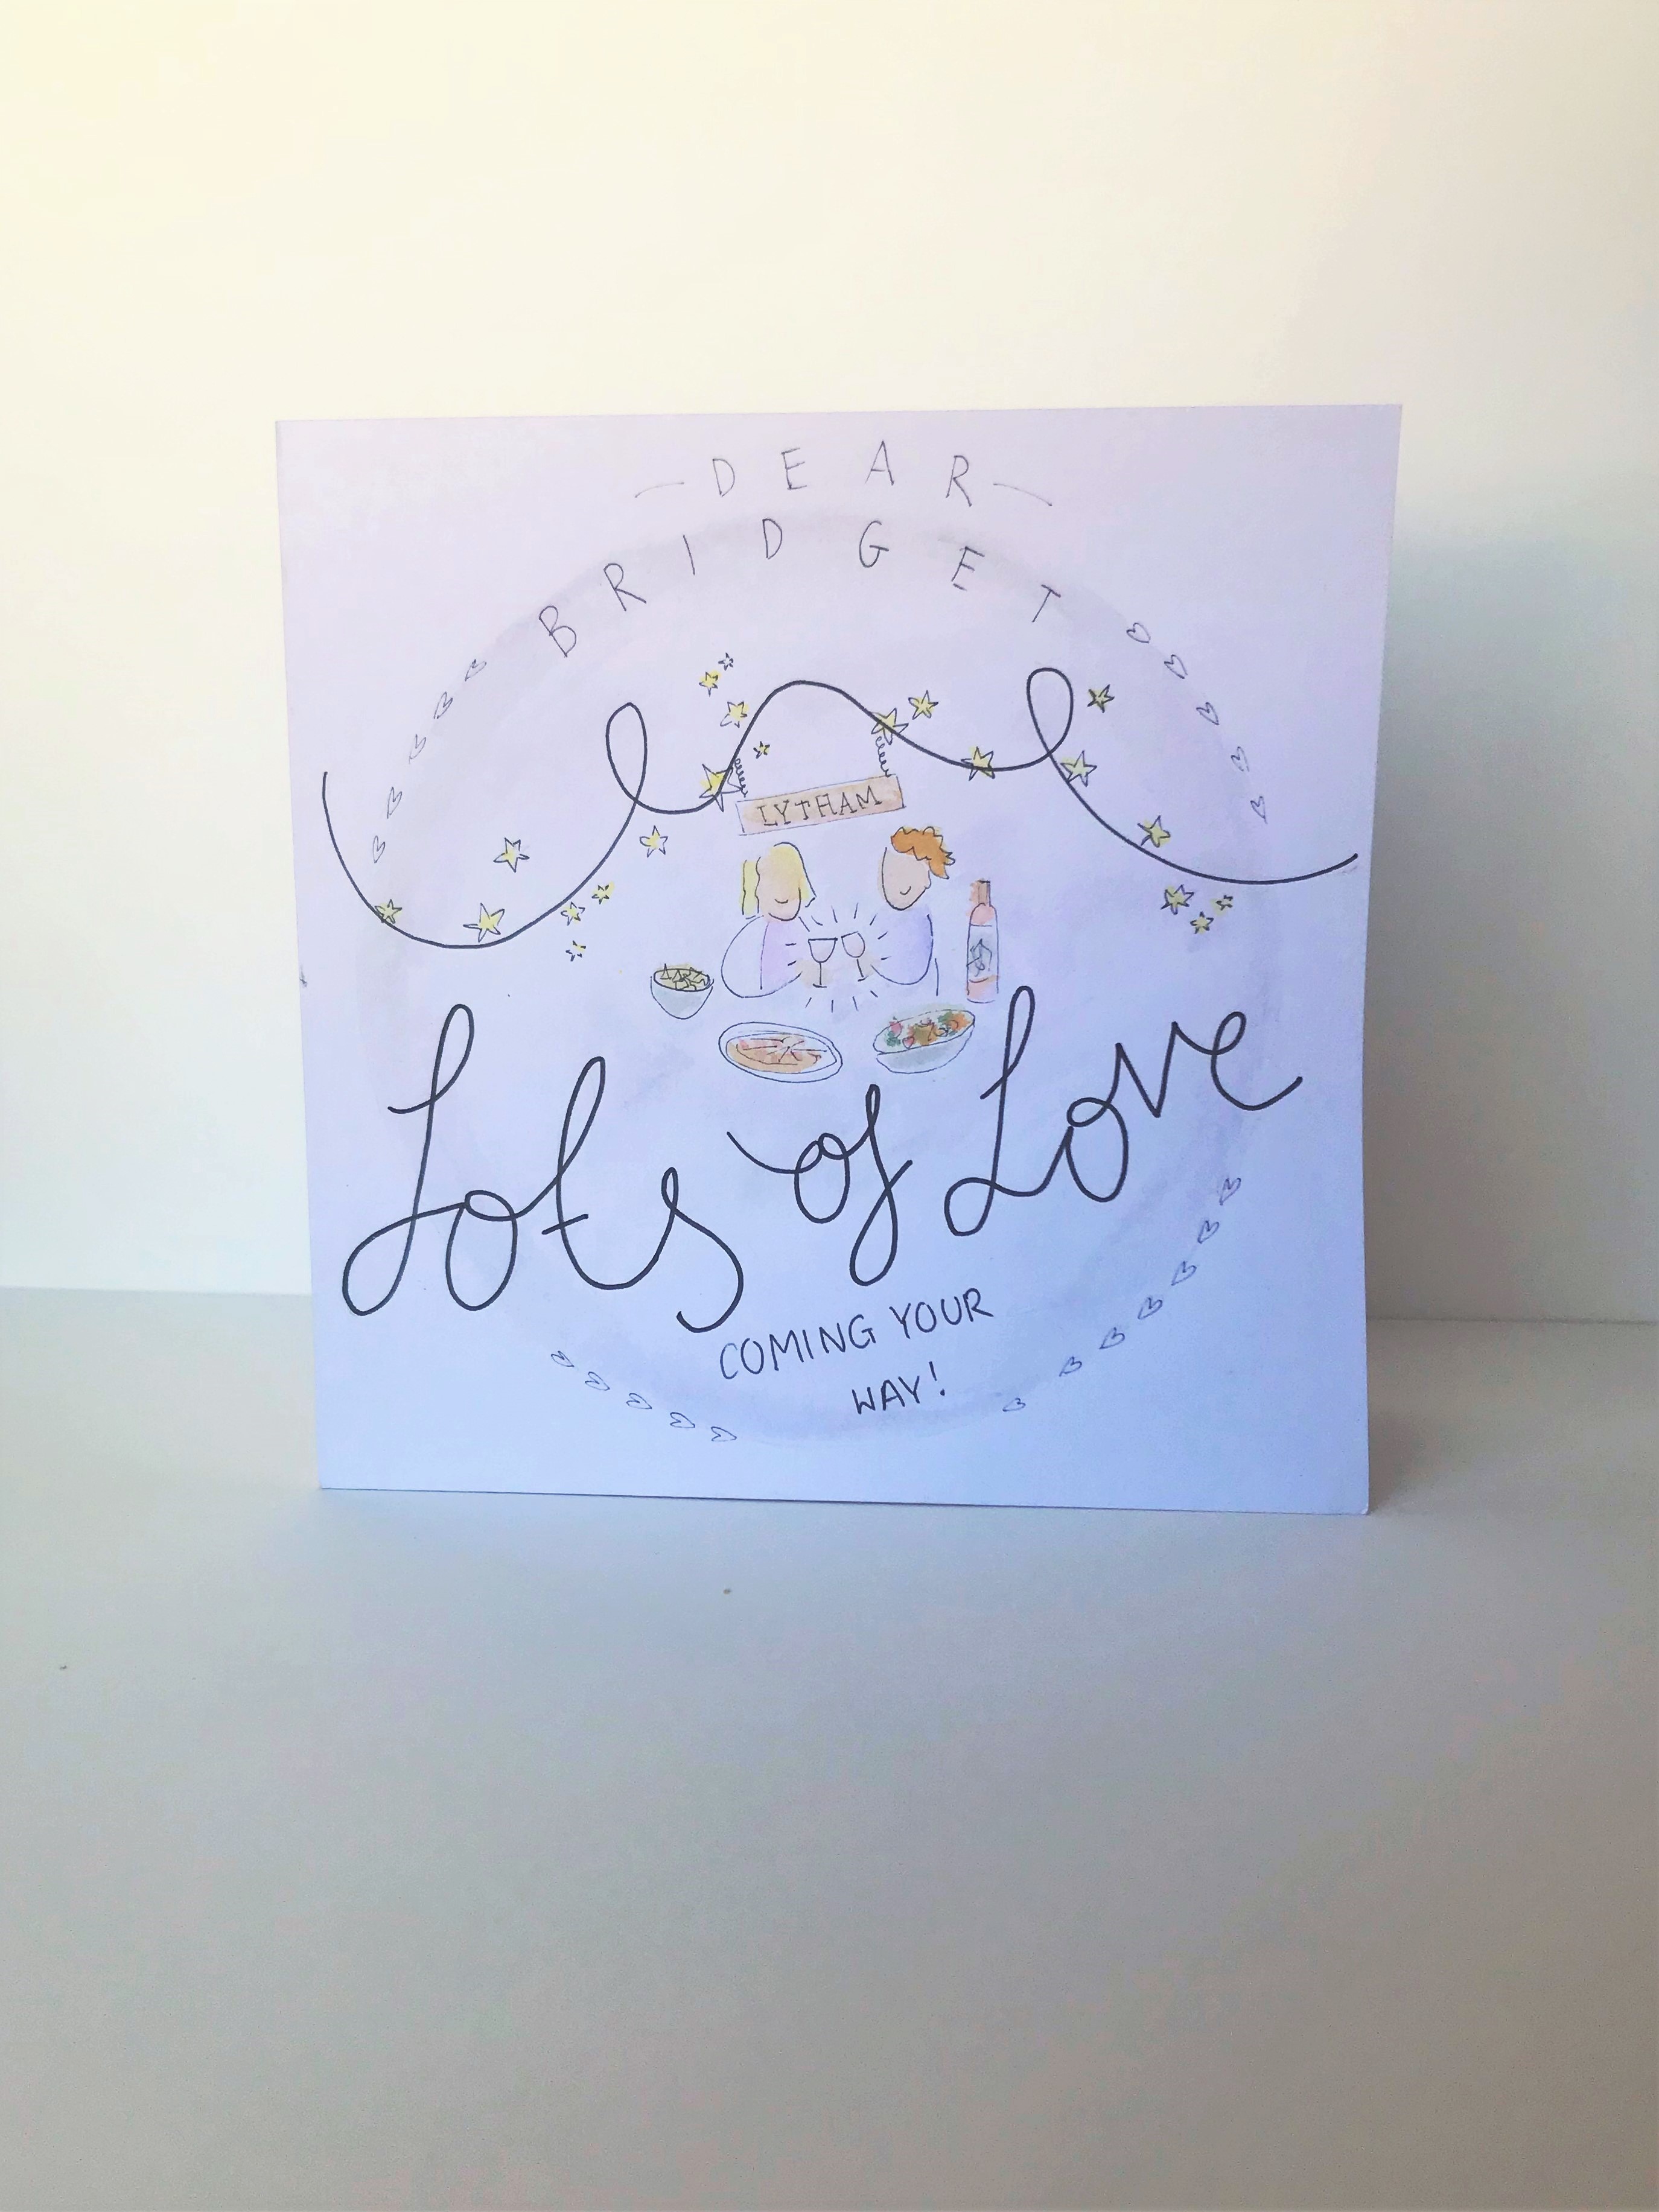 -DEAR-
BRIDGET
LYTHAM
Lots of Love
COMING YOUR
WAY!